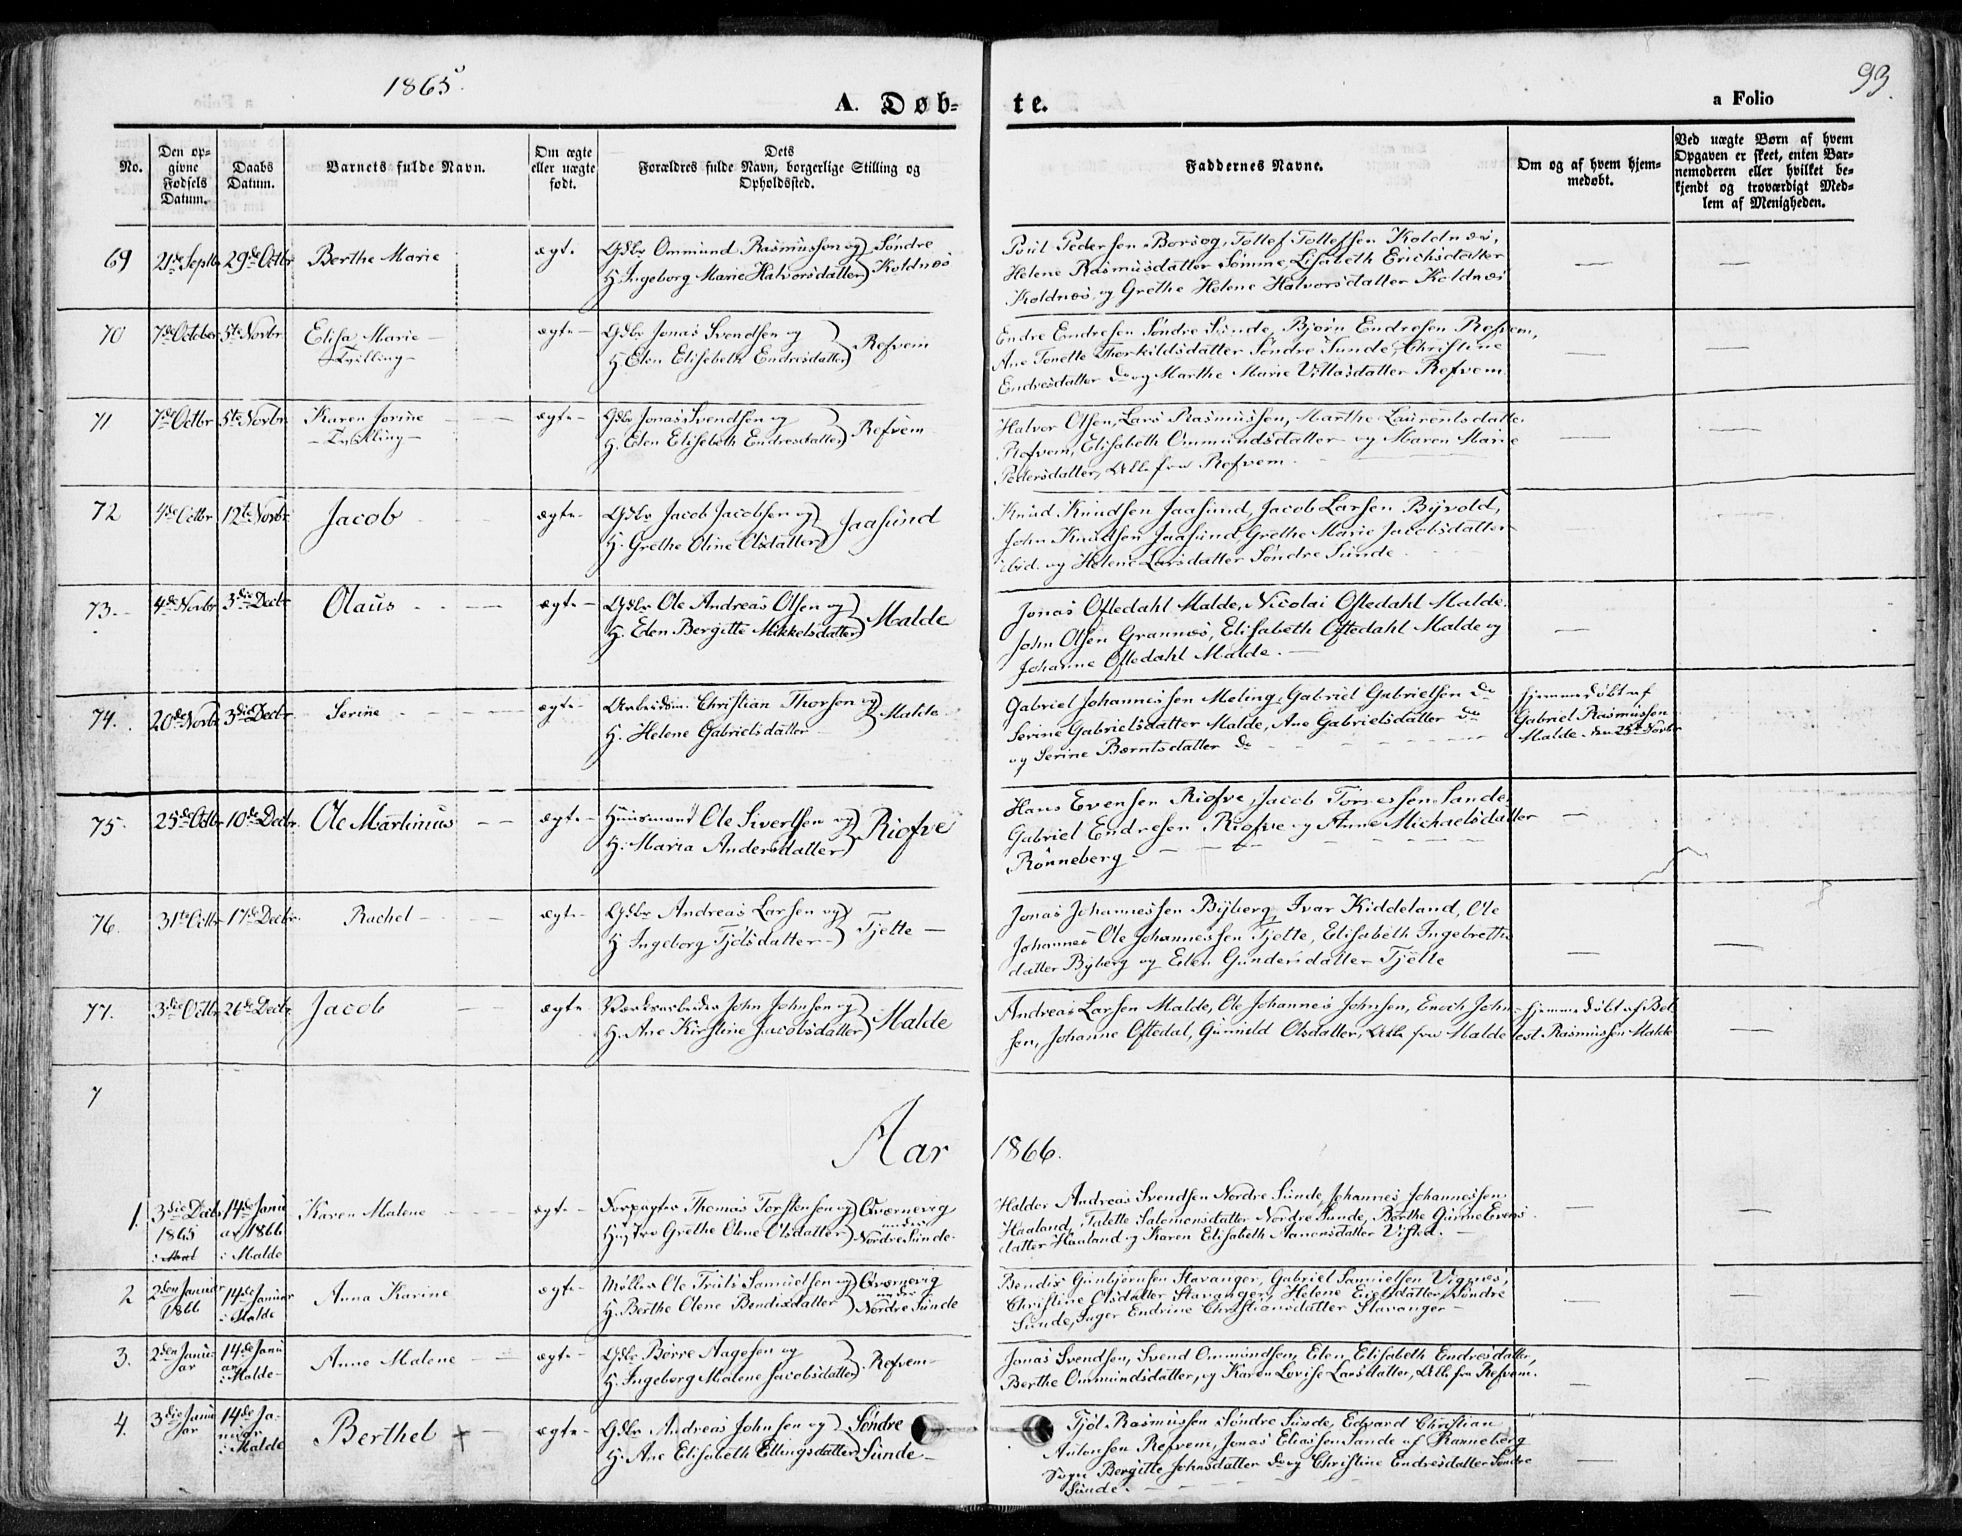 1865.
A. Døb-
te.
a Folio
93.
No.
Den op-
givne
Fødsels
Datum.
Daabs
Datum.
Barnets fulde Navn.
Om ægte
eller uægte
født.
Dets
Forældres fulde Navn, borgerlige Stilling og
Opholdssted.
Faddernes Navne.
Om og af hvem hjem-
medøbt.
Ved uægte Børn af hvem
Opgaven er skeet, enten Bar-
nemoderen eller hvilket be-
kjendt og troværdigt Med-
lem af Menigheden.
69 21de Septbr 29de Octbr Berthe Marie ægte Gdbr Ommund Rasmussen og Søndre
H. Ingeborg Marie Halvorsdatter Koldnæs
Poul Pedersen Borsøg, Tollef Tollefsen Koldnæs,
Helene Rasmusdatter Sømme, Lisabeth Erichsdatter
Koldnæs, og Grethe Helene Halvorsdatter Koldnæs
70 7de October 5te Novbr Elisa Marie ægte Gdbr Jonas Svendsen og
Tvilling
H. Elen Elisebeth Endresdatter Refvem
Endre Endresen Søndre Sunde, Bjørn Endresen Refvem,
Ane Tonette Thorkildsdatter Søndre Sunde, Christine
Endresdatter do og Marthe Marie Villasdatter Refvem
71 7de Octbr 5te Novbr Karen Jorine ægte Gdbr Jonas Svendsen og
Tvilling
H. Elen Elisebeth Endresdatter Refvem
Halvor Olsen, Lars Rasmussen, Marthe Laurentsdatter
Refvem, Elisabeth Ommundsdatter og Maren Marie
Pedersdatter, Alle fra Refvem.
72 4de Octbr 12te Novbr Jacob ægte Gdbr Jacob Jacobsen og
H. Grethe Oline Olsdatter Jaasund
Knud Knudsen Jaasund, Jacob Larsen Byvold,
John Knudsen Jaasund, Grethe Marie Jacobsdatter
ibid. og Helene Larsdatter Søndre Sunde.
73. 4de Novbr 3die Decbr Olaus ægte Gdbr Ole Andreas Olsen og
H. Elen Bergitte Mikkelsdatter Malde
Jonas Oftedahl Malde, Nicolai Oftedahl Malde.
John Olsen Grannæs, Elisabeth Oftedahl Malde og
Johanne Oftedahl Malde.
74. 20de Novbr 3die Decbr Serine ægte Arbeidsm. Christian Thorsen og
H. Helene Gabrielsdatter Malde
Gabriel Johannessen Meling, Gabriel Gabrielsen do
Serine Gabrielsdatter Malde, Ane Gabrielsdatter do
og Serine Berntsdatter do
hjemmedøbt af
Gabriel Rasmussen
Malde den 25de Novbr
75. 25de Octbr 10de Decbr Ole Martinius ægte Huusmand Ole Sivertsen og
H. Maria Andersdatter Riofve
Hans Evensen Riofve, Jacob Torressen Sande,
Gabriel Endresen Riofve og Anne Michaelsdatter
Rønneberg
76. 31te Octbr 17de Decbr. Rachel ægte Gdbr Andreas Larsen og
H. Ingeborg Tjølsdatter Tjelte
Jonas Johannessen Byberg, Ivar Kiddeland, Ole
Johannes Ole Johannessen Tjelte, Elisabeth Ingebretts
datter Byberg og Elen Gundersdatter Tjelte
77. 3die Octbr 26de Decbr. Jacob ægte Værksarbeder John Johnsen og
H. Ane Kirstine Jacobsdatter Malde
Andreas Larsen Malde, Ole Johannes Johnsen, Enoch John-
sen, Johanne Oftedal, Gunnild Olsdatter, Alle fra Malde
hjemmedøbt af Bel
lest Rasmussen Malde
7
Aar 1866.
1. 3die Decbr 14de Janu Karen Malene ægte Forpagter Thomas Torstensen og Qværnevig
1865 ar 1866 Hustro Grethe Olene Olsdatter under
i Malde Nordre Sunde.
Haldor Andreas Svendsen Nordre Sunde, Johannes Johannessen
Haaland, Talette Salemonsdatter Nordre Sunde, Berthe Gurine Evens
datter Haaland og Karen Elisabeth Aanensdatter Visted.
2 2den Januar 14de Januar Anna Karine ægte Møller Ole Truls Samuelsen og Qværnevig
1866 i Malde H. Berthe Olene Bendixdatter under
Nordre Sunde
Bendix Gunbjørnsen Stavanger, Gabriel Samuelsen Vignes,
Christine Olsdatter Stavanger, Helene Eielsdatter, Søndre
Sunde, Inger Endrine Christiansdatter Stavanger
3. 2den Janu- 14de Janu Anne Malene ægte Gdbr Børre Aagesen og
ar ar i Malde H. Ingeborg Malene Jacobsdatter Refvem
Jonas Svendsen, Svend Ommundsen, Elen Elisabeth Endresdatter,
Berthe Ommundsdatter, og Karen Lovise Larsdatter, Alle fra Refvem.
4. 3die Janu 14de Ja- Berthel + ægte Gdbr Andreas Johnsen og Søndre
ar nuar H. Ane Elisabeth Ellingsdatter Sunde
i Malde
Tjøl Rasmussen Søndre Sunde, Edvard Christian
Antonsen Refvem, Jonas Eliassen Sande af Ranneberg
Sogn Bergitte Johnsdatter do og Christine Endresdatter Søndre
Sunde.